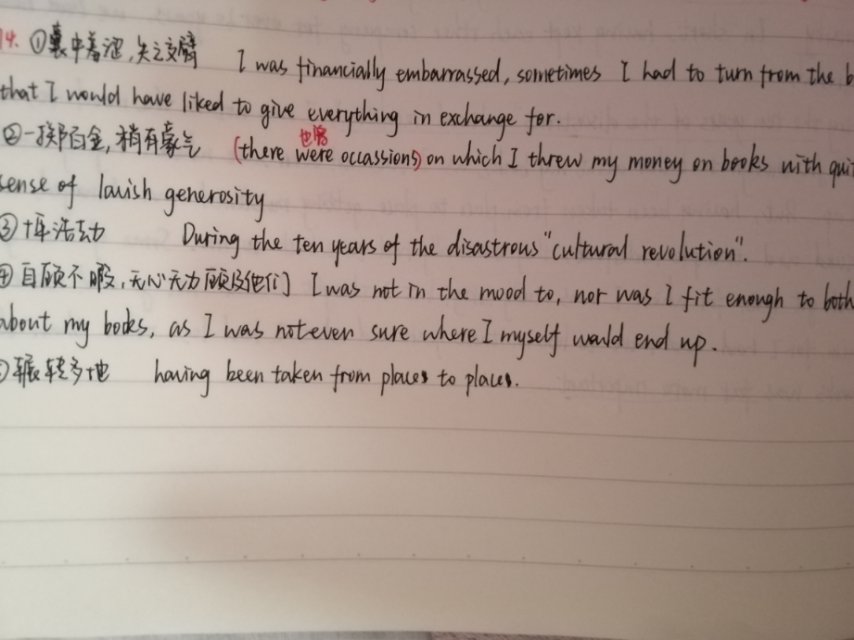 14. ①囊中羞涩,失之交臂 I was financially embarrassed, sometimes I had to turn from the b
that I would have liked to give everything in exchange for.
②一掷百金,稍有豪气 (there were occassions) on which I threw my money on books with qui
也曾
sense of lavish generosity
③十年浩劫 During the ten years of the disastrous "cultural revolution".
④自顾不暇,无心无力顾及他们 I was not in the mood to, nor was I fit enough to both
about my books, as I was not even sure where I myself would end up.
辗转多地 having been taken from places to places.